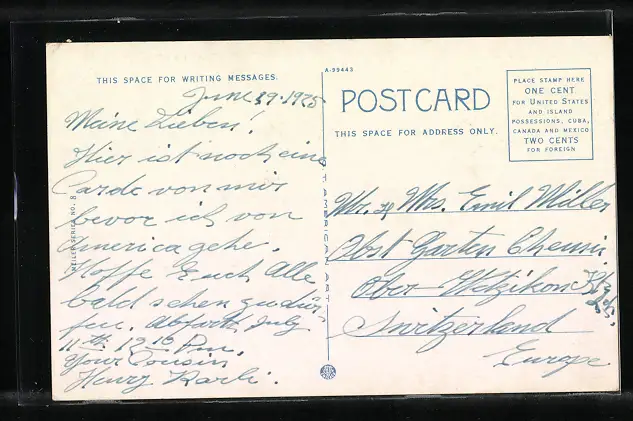 THIS SPACE FOR WRITING MESSAGES.
June 29. 1925
Meine Lieben!
Hier ist noch eine
Carde von mir
bevor ich von
America gehe.
Hoffe Euch Alle
bald sehen zu dür
fen. Abfart July
11th 12
Your Cousin
Henry
A-99443
POSTCARD
THIS SPACE FOR ADDRESS ONLY.
PLACE STAMP HERE
ONE CENT
FOR UNITED STATES
AND ISLAND
POSSESSIONS, CUBA,
CANADA AND MEXICO
TWO CENTS
FOR FOREIGN
Mr. & Mrs. Emil Müller
Obst Garten
Ober-Wetzikon
Switzerland
Europe